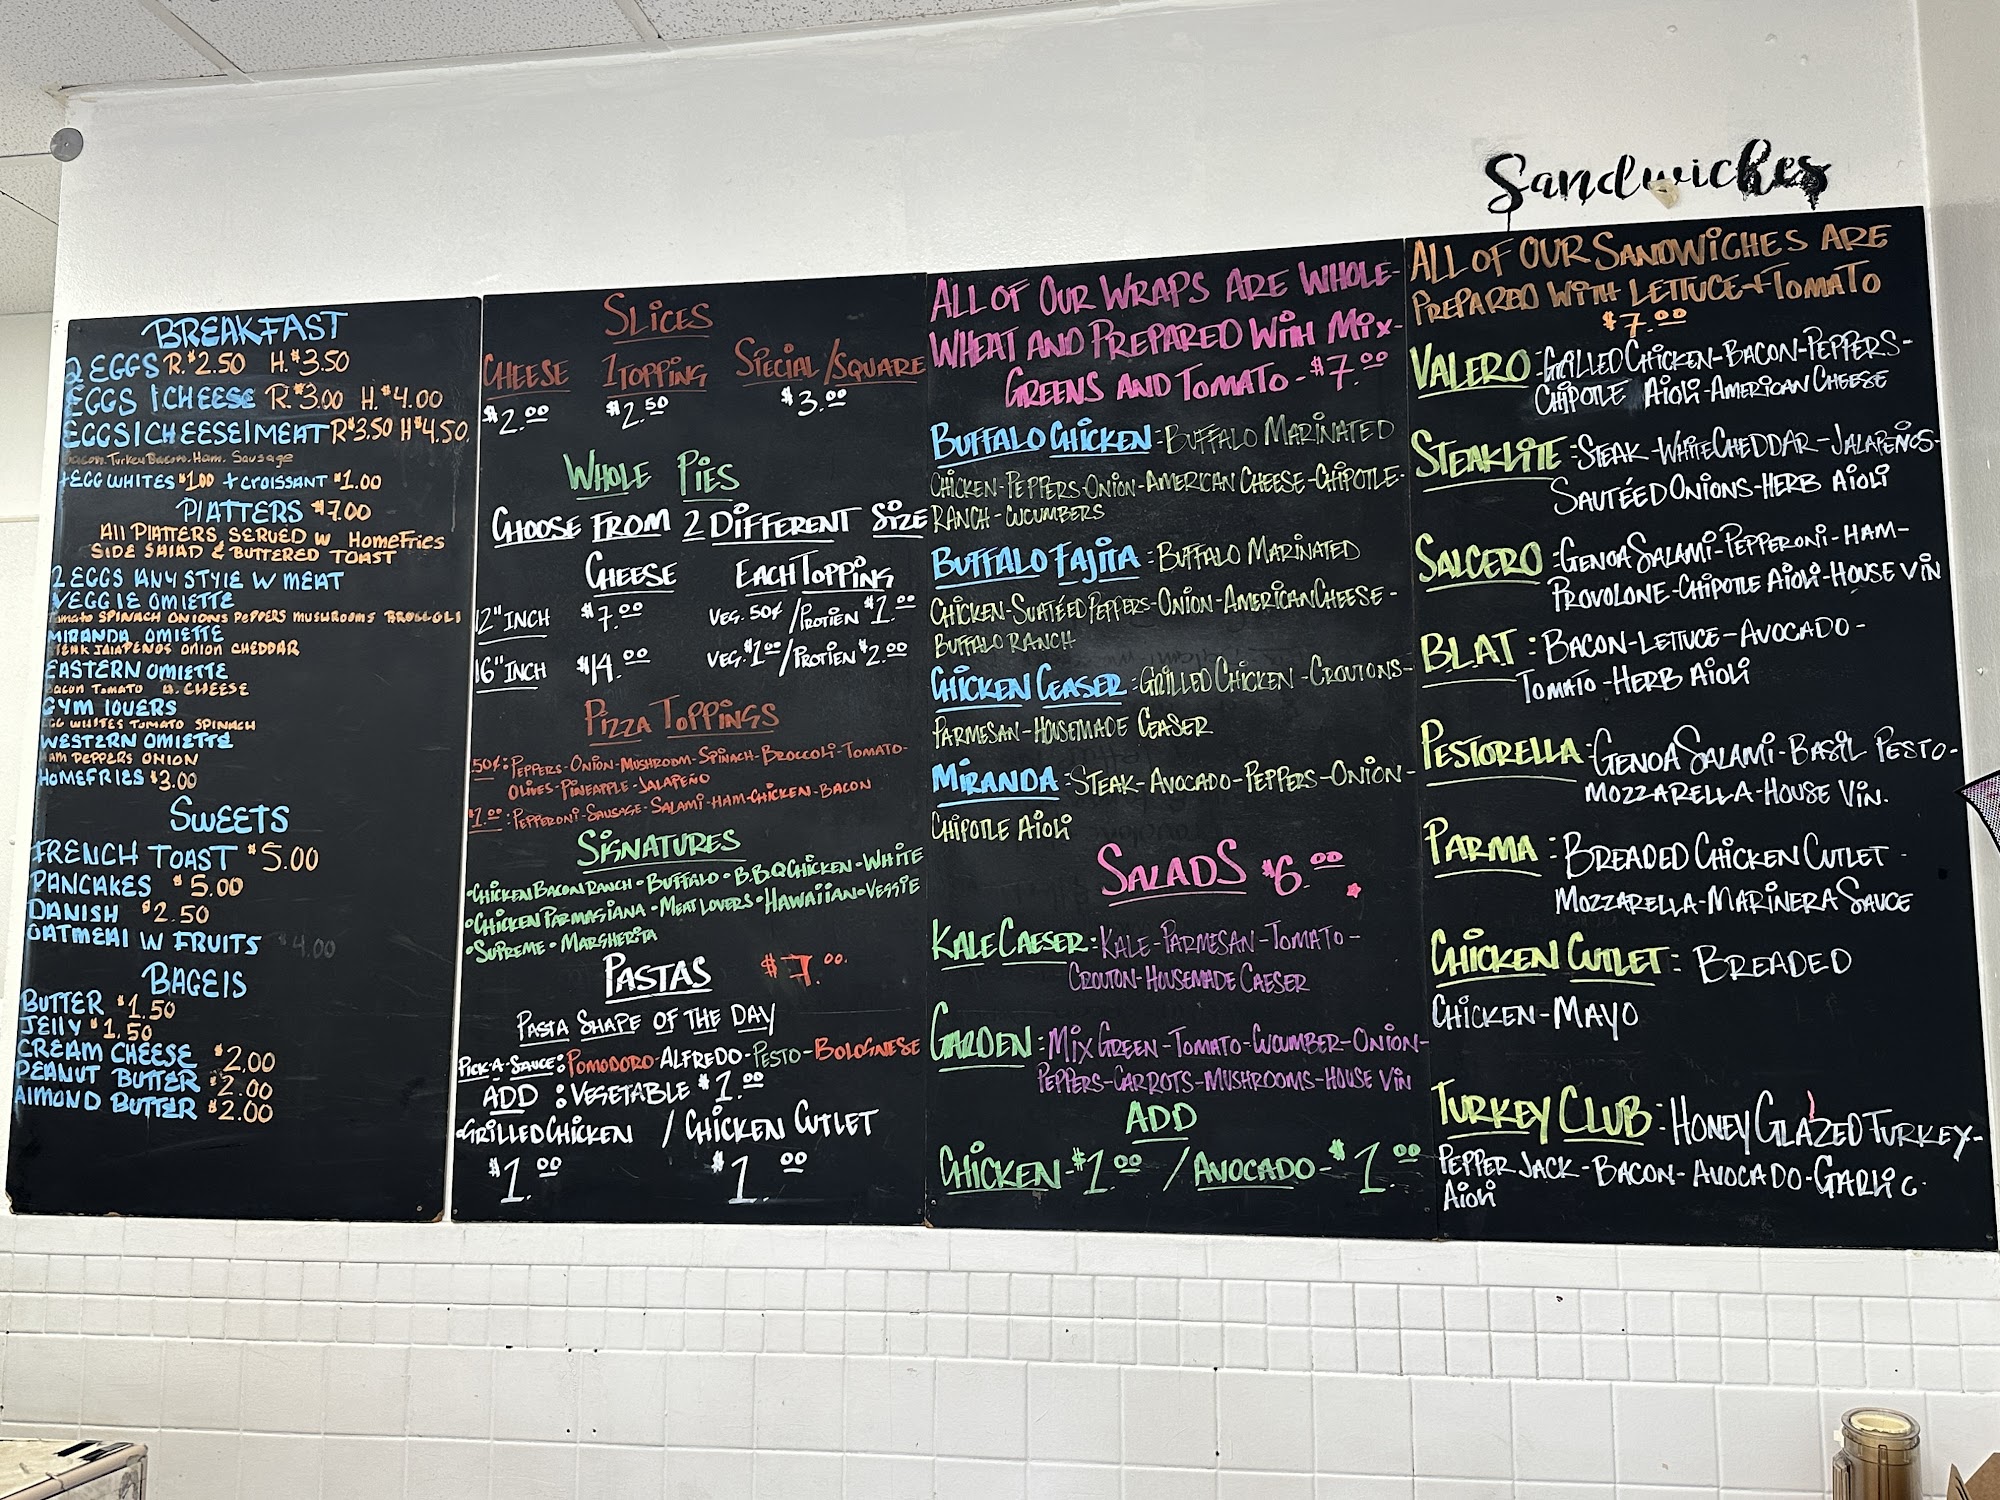 Sandwiches
BREAKFAST
2 EGGS R.$2.50 H.$3.50
EGGS 1 CHEESE R.$3.00 H.$4.00
EGGS 1 CHEESE 1 MEAT R$3.50 H$4.50
Bacon. Turkey Bacon. Ham. Sausage
+EGG WHITES $1.00 + CROISSANT $1.00
PLATTERS $7.00
All PLATTERS SERVED W HomeFries
SIDE SALAD & BUTTERED TOAST
2 EGGS ANY STYLE W MEAT
VEGGIE OMLETTE
Tomato SPINACH ONIONS PEPPERS MUSHROOMS BROCCOLI
MIRANDA OMLETTE
STEAK JALAPENOS ONION CHEDDAR
EASTERN OMLETTE
Bacon Tomato CHEESE
GYM LOVERS
EGG WHITES TOMATO SPINACH
WESTERN OMLETTE
HAM PEPPERS ONION
HOMEFRIES $3.00
SWEETS
FRENCH TOAST $5.00
PANCAKES $5.00
DANISH $2.50
OATMEAL W FRUITS $4.00
BAGELS
BUTTER $1.50
JELLY $1.50
CREAM CHEESE $2.00
PEANUT BUTTER $2.00
ALMOND BUTTER $2.00
SLICES
CHEESE 1 TOPPING SPECIAL/SQUARE
$2.00 $2.50 $3.00
WHOLE PIES
CHOOSE FROM 2 DIFFERENT SIZE
CHEESE EACH TOPPING
12" INCH $7.00 VEG. 50¢/PROTIEN $1.00
16" INCH $14.00 VEG. $1.00/PROTIEN $2.00
PIZZA TOPPINGS
.50¢: PEPPERS-ONION-MUSHROOM-SPINACH-BROCCOLI-TOMATO-
OLIVES-PINEAPPLE-JALAPEÑO
$1.00: PEPPERONI-SAUSAGE-SALAMI-HAM-CHICKEN-BACON
SIGNATURES
•CHICKEN BACON RANCH•BUFFALO•B.B.Q CHICKEN•WHITE
•CHICKEN PARMAGIANA•MEAT LOVERS•HAWAIIAN•VEGGIE
•SUPREME•MARGHERITA
PASTAS $7.00.
PASTA SHAPE OF THE DAY
PICK-A-SAUCE: POMODORO-ALFREDO-PESTO-BOLOGNESE
ADD: VEGETABLE $1.00
•GRILLED CHICKEN / CHICKEN CUTLET
$1.00 $1.00
ALL OF OUR WRAPS ARE WHOLE-
WHEAT AND PREPARED WITH MIX-
GREENS AND TOMATO-$7.00
BUFFALO CHICKEN: BUFFALO MARINATED
CHICKEN-PEPPERS-ONION-AMERICAN CHEESE-CHIPOTLE-
RANCH-CUCUMBERS
BUFFALO FAJITA: BUFFALO MARINATED
CHICKEN-SUATÉED PEPPERS-ONION-AMERICAN CHEESE-
BUFFALO RANCH
CHICKEN CEASER: GRILLED CHICKEN-CROUTONS-
PARMESAN-HOUSEMADE CEASER
MIRANDA: STEAK-AVOCADO-PEPPERS-ONION-
CHIPOTLE AIOLI
SALADS $6.00
KALE CAESER: KALE-PARMESAN-TOMATO-
CROUTON-HOUSEMADE CAESER
GARDEN: MIX GREEN-TOMATO-CUCUMBER-ONION-
PEPPERS-CARROTS-MUSHROOMS-HOUSE VIN
ADD
CHICKEN-$1.00 / AVOCADO-$1.00
ALL OF OUR SANDWICHES ARE
PREPARED WITH LETTUCE+TOMATO
$7.00
VALERO: GRILLED CHICKEN-BACON-PEPPERS-
CHIPOTLE AIOLI-AMERICAN CHEESE
STEAKLITE: STEAK-WHITE CHEDDAR-JALAPEÑOS-
SAUTÉED ONIONS-HERB AIOLI
SALCERO: GENOA SALAMI-PEPPERONI-HAM-
PROVOLONE-CHIPOTLE AIOLI-HOUSE VIN
BLAT: BACON-LETTUCE-AVOCADO-
TOMATO-HERB AIOLI
PESTORELLA: GENOA SALAMI-BASIL PESTO-
MOZZARELLA-HOUSE VIN.
PARMA: BREADED CHICKEN CUTLET-
MOZZARELLA-MARINERA SAUCE
CHICKEN CUTLET: BREADED
CHICKEN-MAYO
TURKEY CLUB: HONEY GLAZED TURKEY-
PEPPER JACK-BACON-AVOCADO-GARLIC
AIOLI